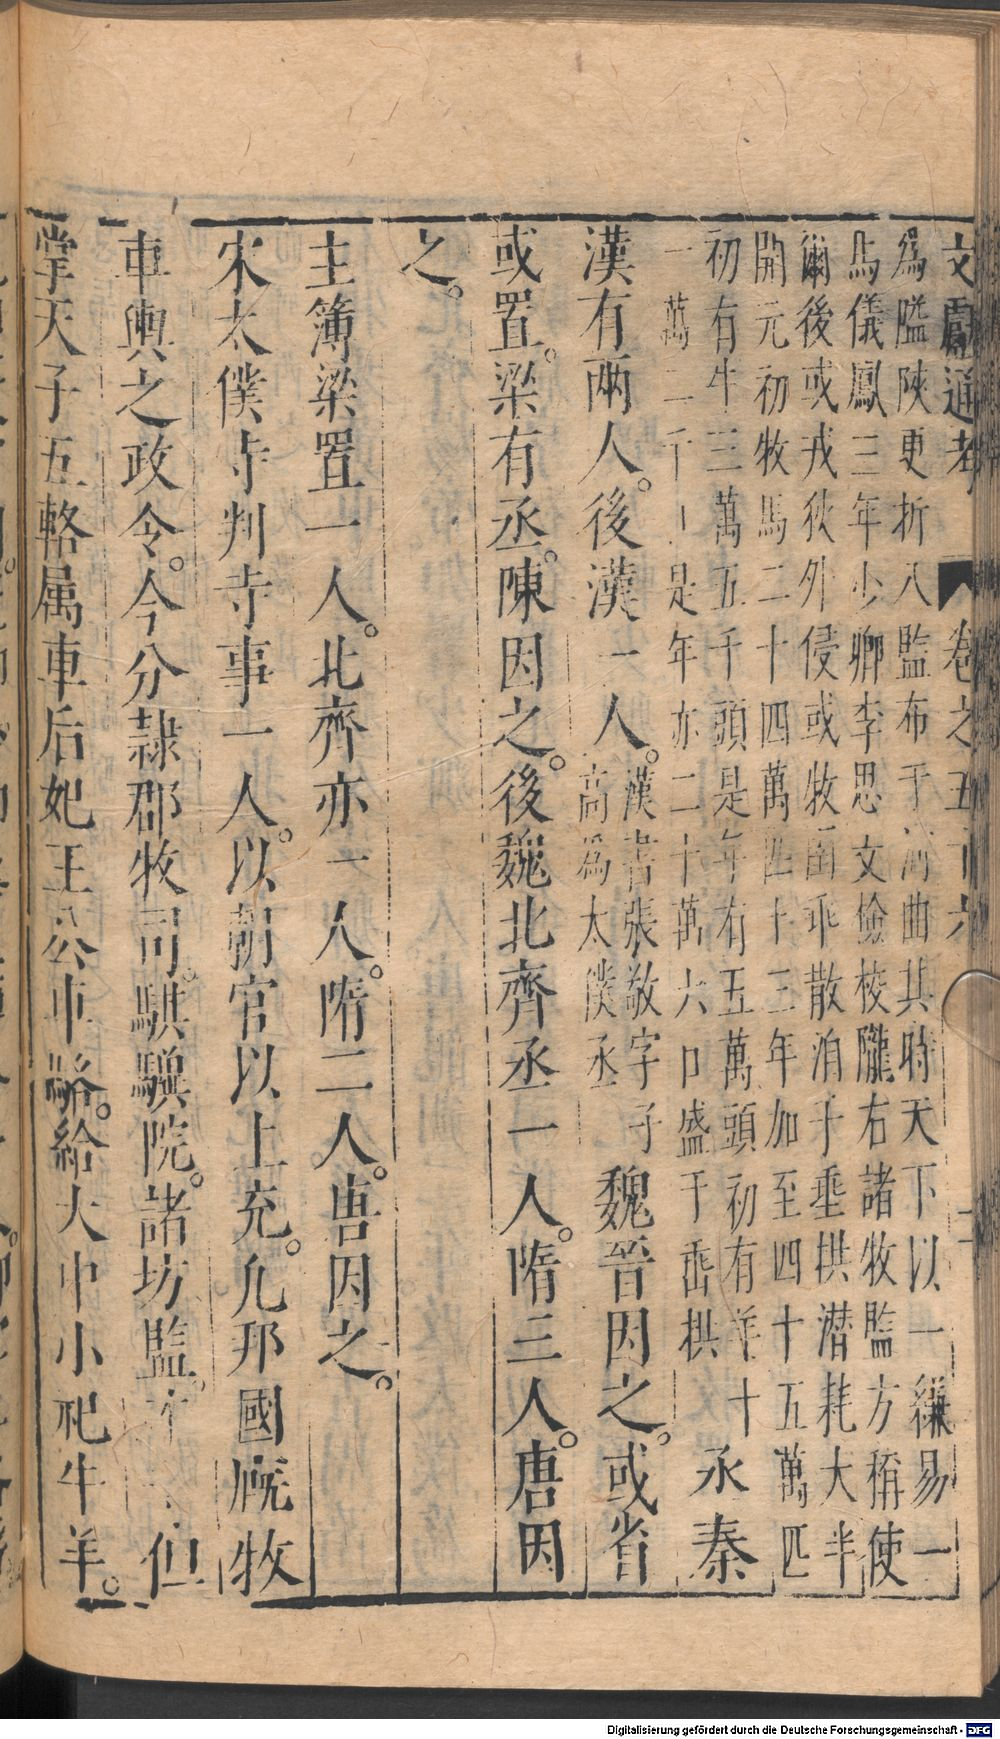 文獻通考 卷之五十六 二
為隘陜更折八監布于河曲其時天下以一縑易一
馬儀鳳三年少卿李思文檢校隴右諸牧監方稱使
爾後或戎狄外侵或牧圉乖散洎于垂拱潜耗大半
開元初牧馬二十四萬匹十三年加至四十五萬匹
初有牛三萬五千頭是年有五萬頭初有羊十
一萬二千口是年亦二十萬六口盛于垂拱
丞秦
漢有兩人。後漢一人。
漢書張敬字子
高為太僕丞
魏晉因之。或省
或置。梁有丞。陳因之。後魏北齊丞一人。隋三人。唐因
之。
主簿梁置一人。北齊亦一人。隋二人。唐因之。
宋太僕寺判寺事一人。以朝官以上充。凡邦國廐牧
車輿之政令。今分隸郡牧司。騏驥院。諸坊監。但
掌天子五輅属車后妃王公車輅。給大中小祀牛羊。
Digitalisierung gefördert durch die Deutsche Forschungsgemeinschaft - DFG